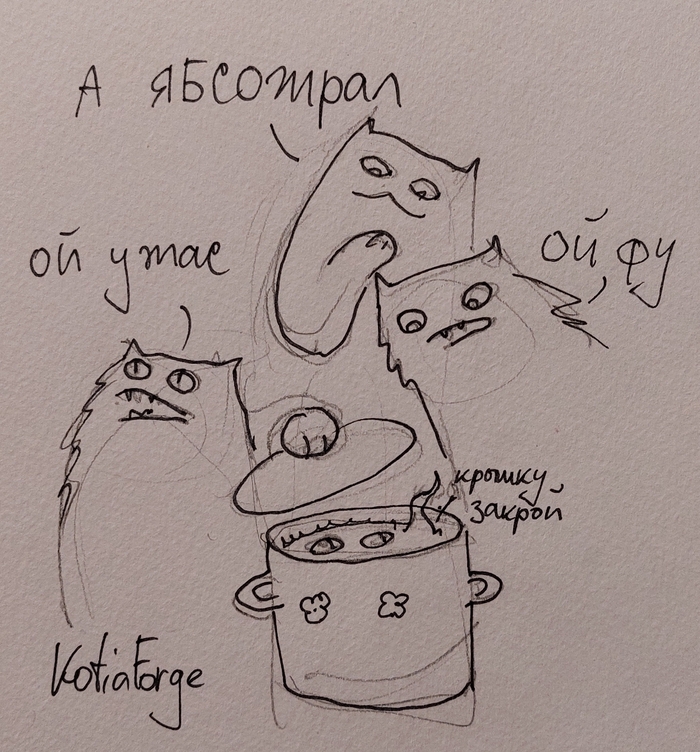 А ЯБСОЖРАЛ
ой ужас
ой фу
крышку
закрой
KotiaForge